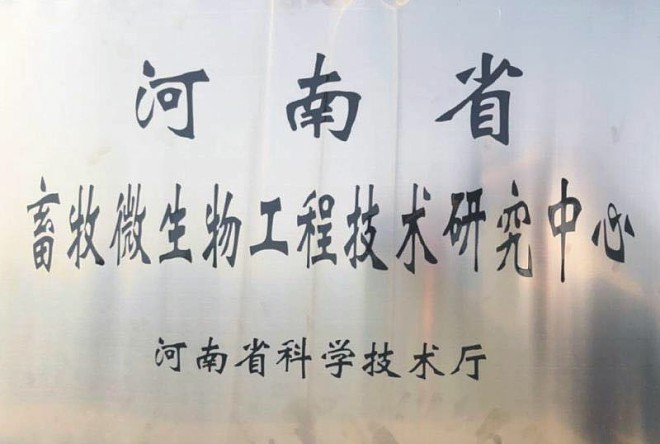 河南省
畜牧微生物工程技术研究中心
河南省科学技术厅